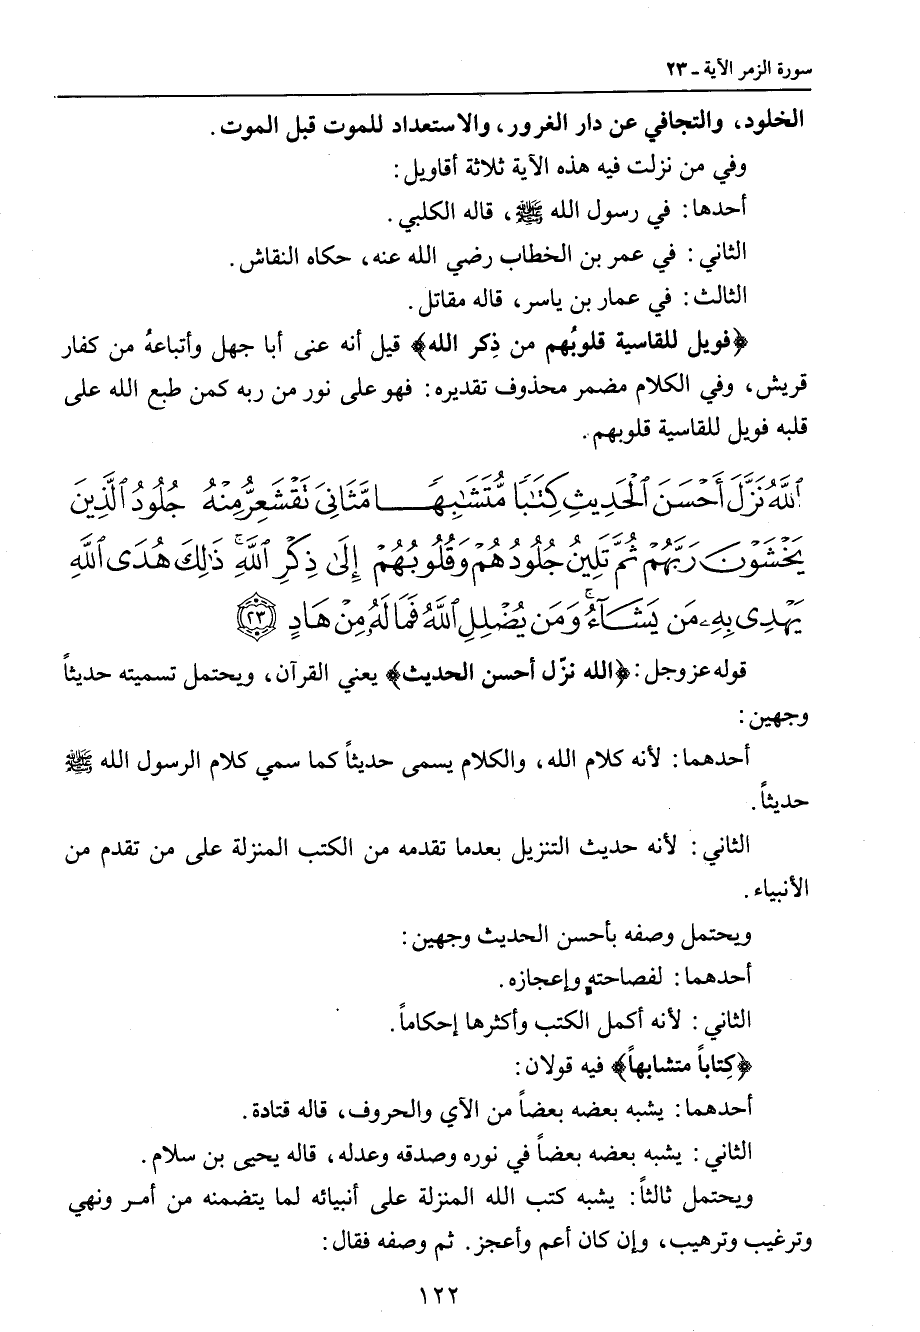 سورة الزمر الآية - ٢٣
الخلود، والتجافي عن دار الغرور، والاستعداد للموت قبل الموت.
وفي من نزلت فيه هذه الآية ثلاثة أقاويل:
أحدها: في رسول الله ﷺ، قاله الكلبي.
الثاني: في عمر بن الخطاب رضي الله عنه، حكاه النقاش.
الثالث: في عمار بن ياسر، قاله مقاتل.
﴿فويل للقاسية قلوبُهم من ذِكر الله﴾ قيل أنه عنى أبا جهل وأتباعهُ من كفار
قريش، وفي الكلام مضمر محذوف تقديره: فهو على نور من ربه كمن طبع الله على
قلبه فويل للقاسية قلوبهم.
ٱللَّهُ نَزَّلَ أَحْسَنَ ٱلْحَدِيثِ كِتَٰبًا مُّتَشَٰبِهًا مَّثَانِىَ تَقْشَعِرُّ مِنْهُ جُلُودُ ٱلَّذِينَ
يَخْشَوْنَ رَبَّهُمْ ثُمَّ تَلِينُ جُلُودُهُمْ وَقُلُوبُهُمْ إِلَىٰ ذِكْرِ ٱللَّهِ ۚ ذَٰلِكَ هُدَى ٱللَّهِ
يَهْدِى بِهِۦ مَن يَشَآءُ ۚ وَمَن يُضْلِلِ ٱللَّهُ فَمَا لَهُۥ مِنْ هَادٍ ۝٢٣
قوله عز وجل: ﴿الله نزّل أحسن الحديث﴾ يعني القرآن، ويحتمل تسميته حديثاً
وجهين:
أحدهما: لأنه كلام الله، والكلام يسمى حديثاً كما سمي كلام الرسول الله ﷺ
حديثاً.
الثاني: لأنه حديث التنزيل بعدما تقدمه من الكتب المنزلة على من تقدم من
الأنبياء.
ويحتمل وصفه بأحسن الحديث وجهين:
أحدهما: لفصاحته وإعجازه.
الثاني: لأنه أكمل الكتب وأكثرها إحكاماً.
﴿كِتاباً متشابهاً﴾ فيه قولان:
أحدهما: يشبه بعضه بعضاً من الآي والحروف، قاله قتادة.
الثاني: يشبه بعضه بعضاً في نوره وصدقه وعدله، قاله يحيى بن سلام.
ويحتمل ثالثاً: يشبه كتب الله المنزلة على أنبيائه لما يتضمنه من أمر ونهي
وترغيب وترهيب، وإن كان أعم وأعجز. ثم وصفه فقال:
١٢٢